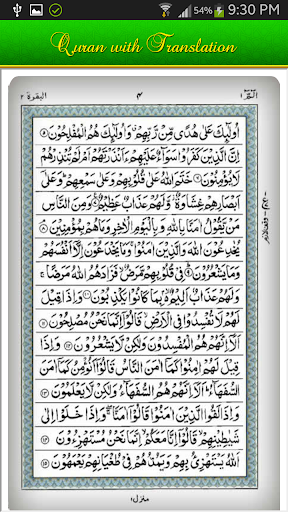 54% 9:30 PM
Quran with Translation
البقرة ٢
٤
الٓمٓ ١
أُولَٰٓئِكَ عَلَىٰ هُدًى مِّن رَّبِّهِمْ وَأُولَٰٓئِكَ هُمُ الْمُفْلِحُونَ ۝٥
إِنَّ الَّذِينَ كَفَرُوا سَوَآءٌ عَلَيْهِمْ ءَأَنذَرْتَهُمْ أَمْ لَمْ تُنذِرْهُمْ
لَا يُؤْمِنُونَ ۝٦ خَتَمَ اللَّهُ عَلَىٰ قُلُوبِهِمْ وَعَلَىٰ سَمْعِهِمْ وَعَلَىٰ
أَبْصَارِهِمْ غِشَاوَةٌ وَلَهُمْ عَذَابٌ عَظِيمٌ ۝٧ وَمِنَ النَّاسِ
مَن يَقُولُ آمَنَّا بِاللَّهِ وَبِالْيَوْمِ الْآخِرِ وَمَا هُم بِمُؤْمِنِينَ ۝٨
يُخَادِعُونَ اللَّهَ وَالَّذِينَ آمَنُوا وَمَا يَخْدَعُونَ إِلَّا أَنفُسَهُمْ
وَمَا يَشْعُرُونَ ۝٩ فِي قُلُوبِهِم مَّرَضٌ فَزَادَهُمُ اللَّهُ مَرَضًا
وَلَهُمْ عَذَابٌ أَلِيمٌ بِمَا كَانُوا يَكْذِبُونَ ۝١٠ وَإِذَا قِيلَ
لَهُمْ لَا تُفْسِدُوا فِي الْأَرْضِ قَالُوا إِنَّمَا نَحْنُ مُصْلِحُونَ ۝١١
أَلَا إِنَّهُمْ هُمُ الْمُفْسِدُونَ وَلَٰكِن لَّا يَشْعُرُونَ ۝١٢ وَإِذَا
قِيلَ لَهُمْ آمِنُوا كَمَا آمَنَ النَّاسُ قَالُوا أَنُؤْمِنُ كَمَا آمَنَ
السُّفَهَاءُ أَلَا إِنَّهُمْ هُمُ السُّفَهَاءُ وَلَٰكِن لَّا يَعْلَمُونَ ۝١٣
وَإِذَا لَقُوا الَّذِينَ آمَنُوا قَالُوا آمَنَّا وَإِذَا خَلَوْا إِلَىٰ
شَيَاطِينِهِمْ قَالُوا إِنَّا مَعَكُمْ إِنَّمَا نَحْنُ مُسْتَهْزِئُونَ ۝١٤
اللَّهُ يَسْتَهْزِئُ بِهِمْ وَيَمُدُّهُمْ فِي طُغْيَانِهِمْ يَعْمَهُونَ ۝١٥
منزل ١